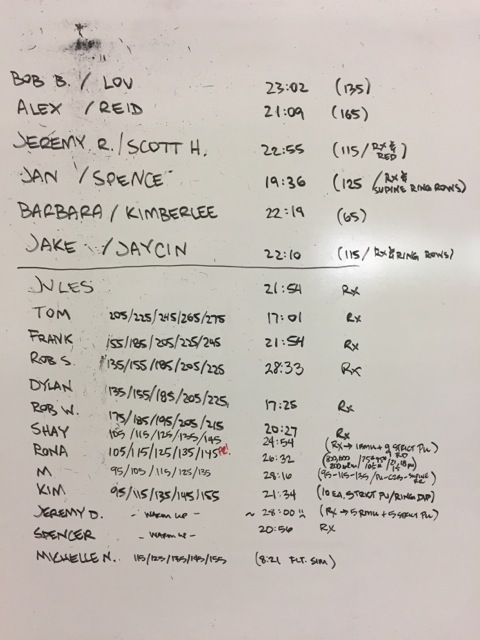 BOB B. / LOU 23:02 (135)
ALEX / REID 21:09 (165)
JEREMY R. / SCOTT H. 22:55 (115 / RX & RED)
JAN / SPENCE 19:36 (125 / RX & SUPINE RING ROWS)
BARBARA / KIMBERLEE 22:19 (65)
JAKE / JAYCIN 22:10 (115 / RX & RING ROWS)
JULES 21:54 RX
TOM 205/225/245/265/275 17:01 RX
FRANK 155/185/205/225/245 21:54 RX
ROB S. 135/155/185/205/225 28:33 RX
DYLAN 135/155/185/205/225 17:25 RX
ROB W. 175/185/195/205/215 20:27 RX
SHAY 105/115/125/135/145 24:54 (RX → 1 RMU + 9 STRICT PU)
RONA 105/115/125/135/145 PR! 26:32
M 95/105/115/125/135 28:16
KIM 95/115/135/145/155 21:34 (10 EA. STRICT PU/RING DIP)
JEREMY D. - WARM UP - ~ 28:00 !! (RX → 5 RMU + 5 STRICT PU)
SPENCER - WARM UP - 20:56 RX
MICHELLE N. 115/125/135/145/155 (8:21 FLT. SIM)